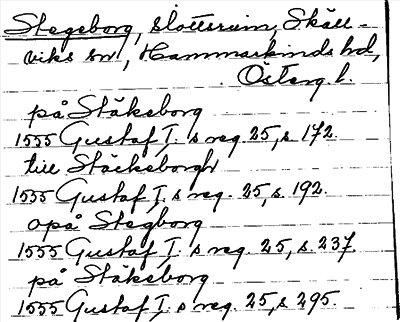 Stegeborg, slottsruin, Skäll-
viks sn, Hammarkinds hd,
Österg. l.
på Stäkeborg
1555 Gustaf I. s reg. 25, s. 172.
till Stäckeborgh
1555 Gustaf I. s reg. 25, s. 192.
opå Stegborg
1555 Gustaf I. s reg. 25, s. 237.
på Stäkeborg
1555 Gustaf I. s reg. 25, s. 295.